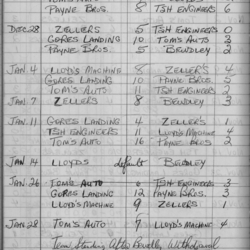 TOM'S AUTO
PAYNE BROS. 8 TSH ENGINEERS 6
DEC 28 ZELLERS 5 TSH ENGINEERS 0
GORES LANDING 10 TOM'S AUTO 3
PAYNE BROS. 5 BEWDLEY 2
JAN 4 LLOYD'S MACHINE 8 ZELLER'S 4
GORES LANDING 10 PAYNE BROS. 5
TOM'S AUTO 11 TSH ENGINEERS 2
JAN 7 ZELLER'S 8 BEWDLEY 3
JAN 11 GORES LANDING 4 ZELLERS 1
TSH ENGINEERS 11 LLOYD'S MACHINE 4
TOM'S AUTO 16 PAYNE BROS 2
JAN 14 LLOYDS default BEWDLEY
JAN 26 TOM'S AUTO 6 TSH ENGINEERS 3
GORES LANDING 12 PAYNE BROS. 3
LLOYD'S MACHINE 9 ZELLERS 1
JAN 28 TOM'S AUTO 7 LLOYD'S MACHINE 4
Team Standing After Bewdley Withdrawal